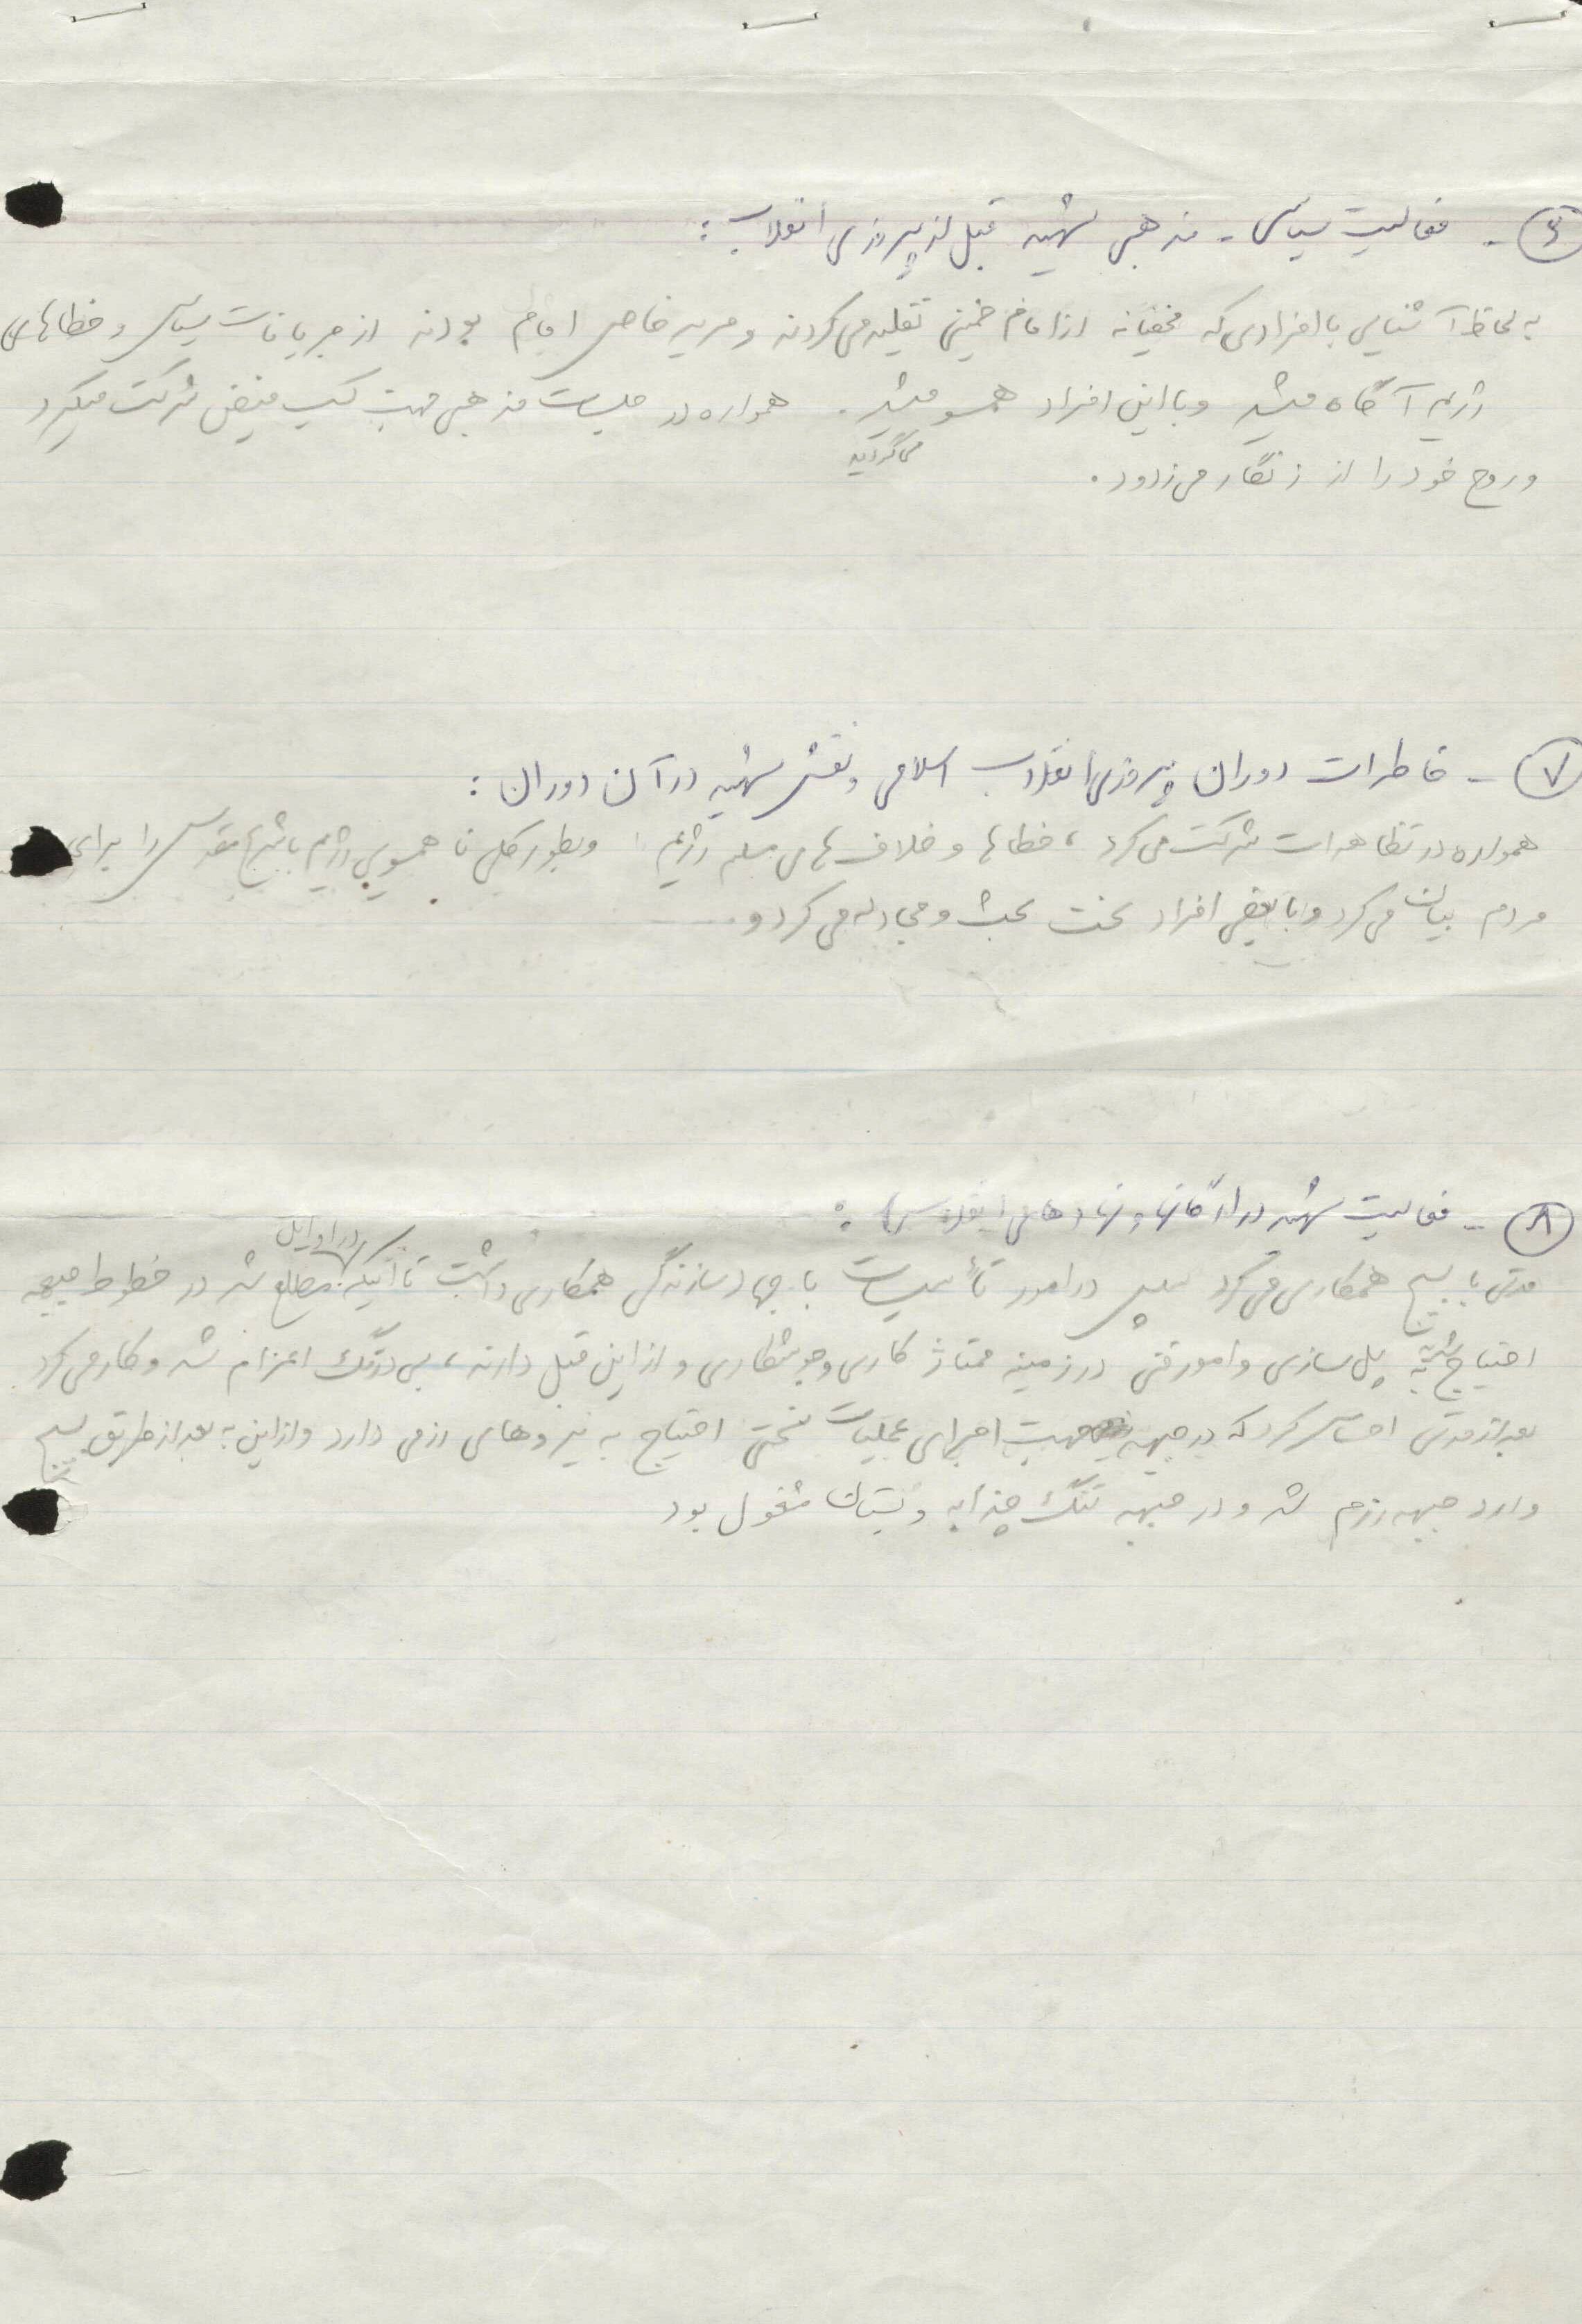 ۶ - فعالیت سیاسی - مذهبی شهید قبل از پیروزی انقلاب :
به لحاظ آشنایی با افرادی که مخفیانه از امام خمینی تقلید می کردند و مرید خاص امام بودند از جریانات سیاسی و خطاهای
رژیم آگاه میشد و با این افراد همسو میشد . همواره در جلسات مذهبی جهت کسب فیض شرکت میکرد
می گردید
و روح خود را از زنگار می زدود .
۷ - خاطرات دوران پیروزی انقلاب اسلامی و نقش شهید در آن دوران :
همواره در تظاهرات شرکت می کرد ، خطاها و خلاف های مسلم رژیم و بطور کلی نا همسویی رژیم با شرع مقدس را برای
مردم بیان می کرد و با بعضی افراد سخت بحث و مجادله می کرد و
۸ - فعالیت شهید در ارگانها و نهادهای انقلاب :
در اوایل
مدتی با بسیج همکاری می کرد سپس در امور تأسیسات با جهاد سازندگی همکاری داشت تا اینکه مطلع شد در خطوط جبهه
احتیاج به پل سازی و امور فنی در زمینه ممتاز کاری و جوشکاری و از این قبل دارند ، بی درنگ اعزام شد و کار می کرد
بعد از مدتی احساس کرد که در جبهه جهت اجرای عملیات سختی احتیاج به نیروهای رزمی دارد و از این به بعد از طریق بسیج
وارد جبهه رزم شد و در جبهه تنگ چذابه و بستان مشغول بود